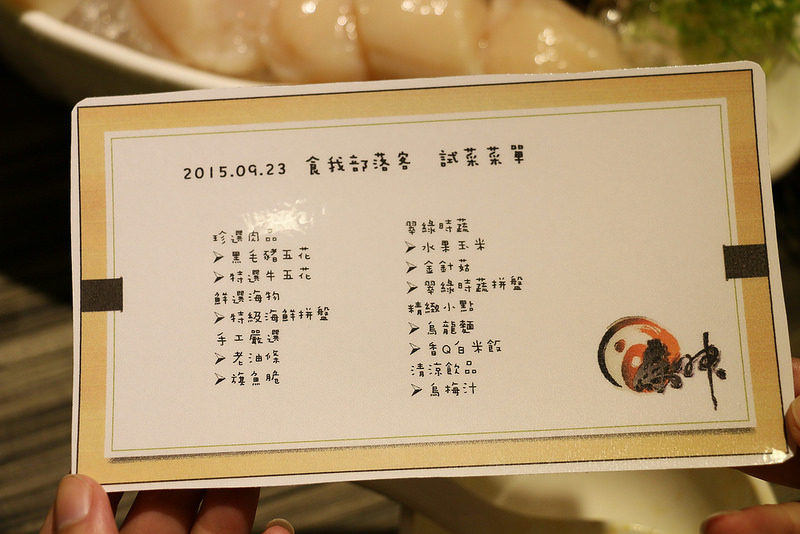 2015.09.23 食我部落客 試菜菜單
珍選肉品
➢黑毛豬五花
➢特選牛五花
鮮選海物
➢特級海鮮拼盤
手工嚴選
➢老油條
➢旗魚脆
翠綠時蔬
➢水果玉米
➢金針菇
➢翠綠時蔬拼盤
精緻小點
➢烏龍麵
➢香Q白米飯
清涼飲品
➢烏梅汁